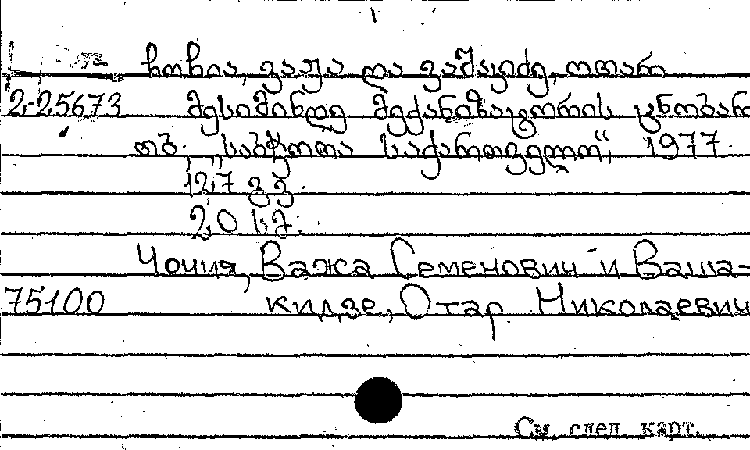 ჩოჩია, ვაჟა და ვაშაკიძე, ოთარი
2-25673 მესიმინდე მექანიზატორის ცნობარი
თბ. „საბჭოთა საქართველო“, 1977.
127 გვ.
20 სმ.
Чочия, Важа Семенович и Ваша-
75100 кидзе, Отар Николаевич
См. след. карт.